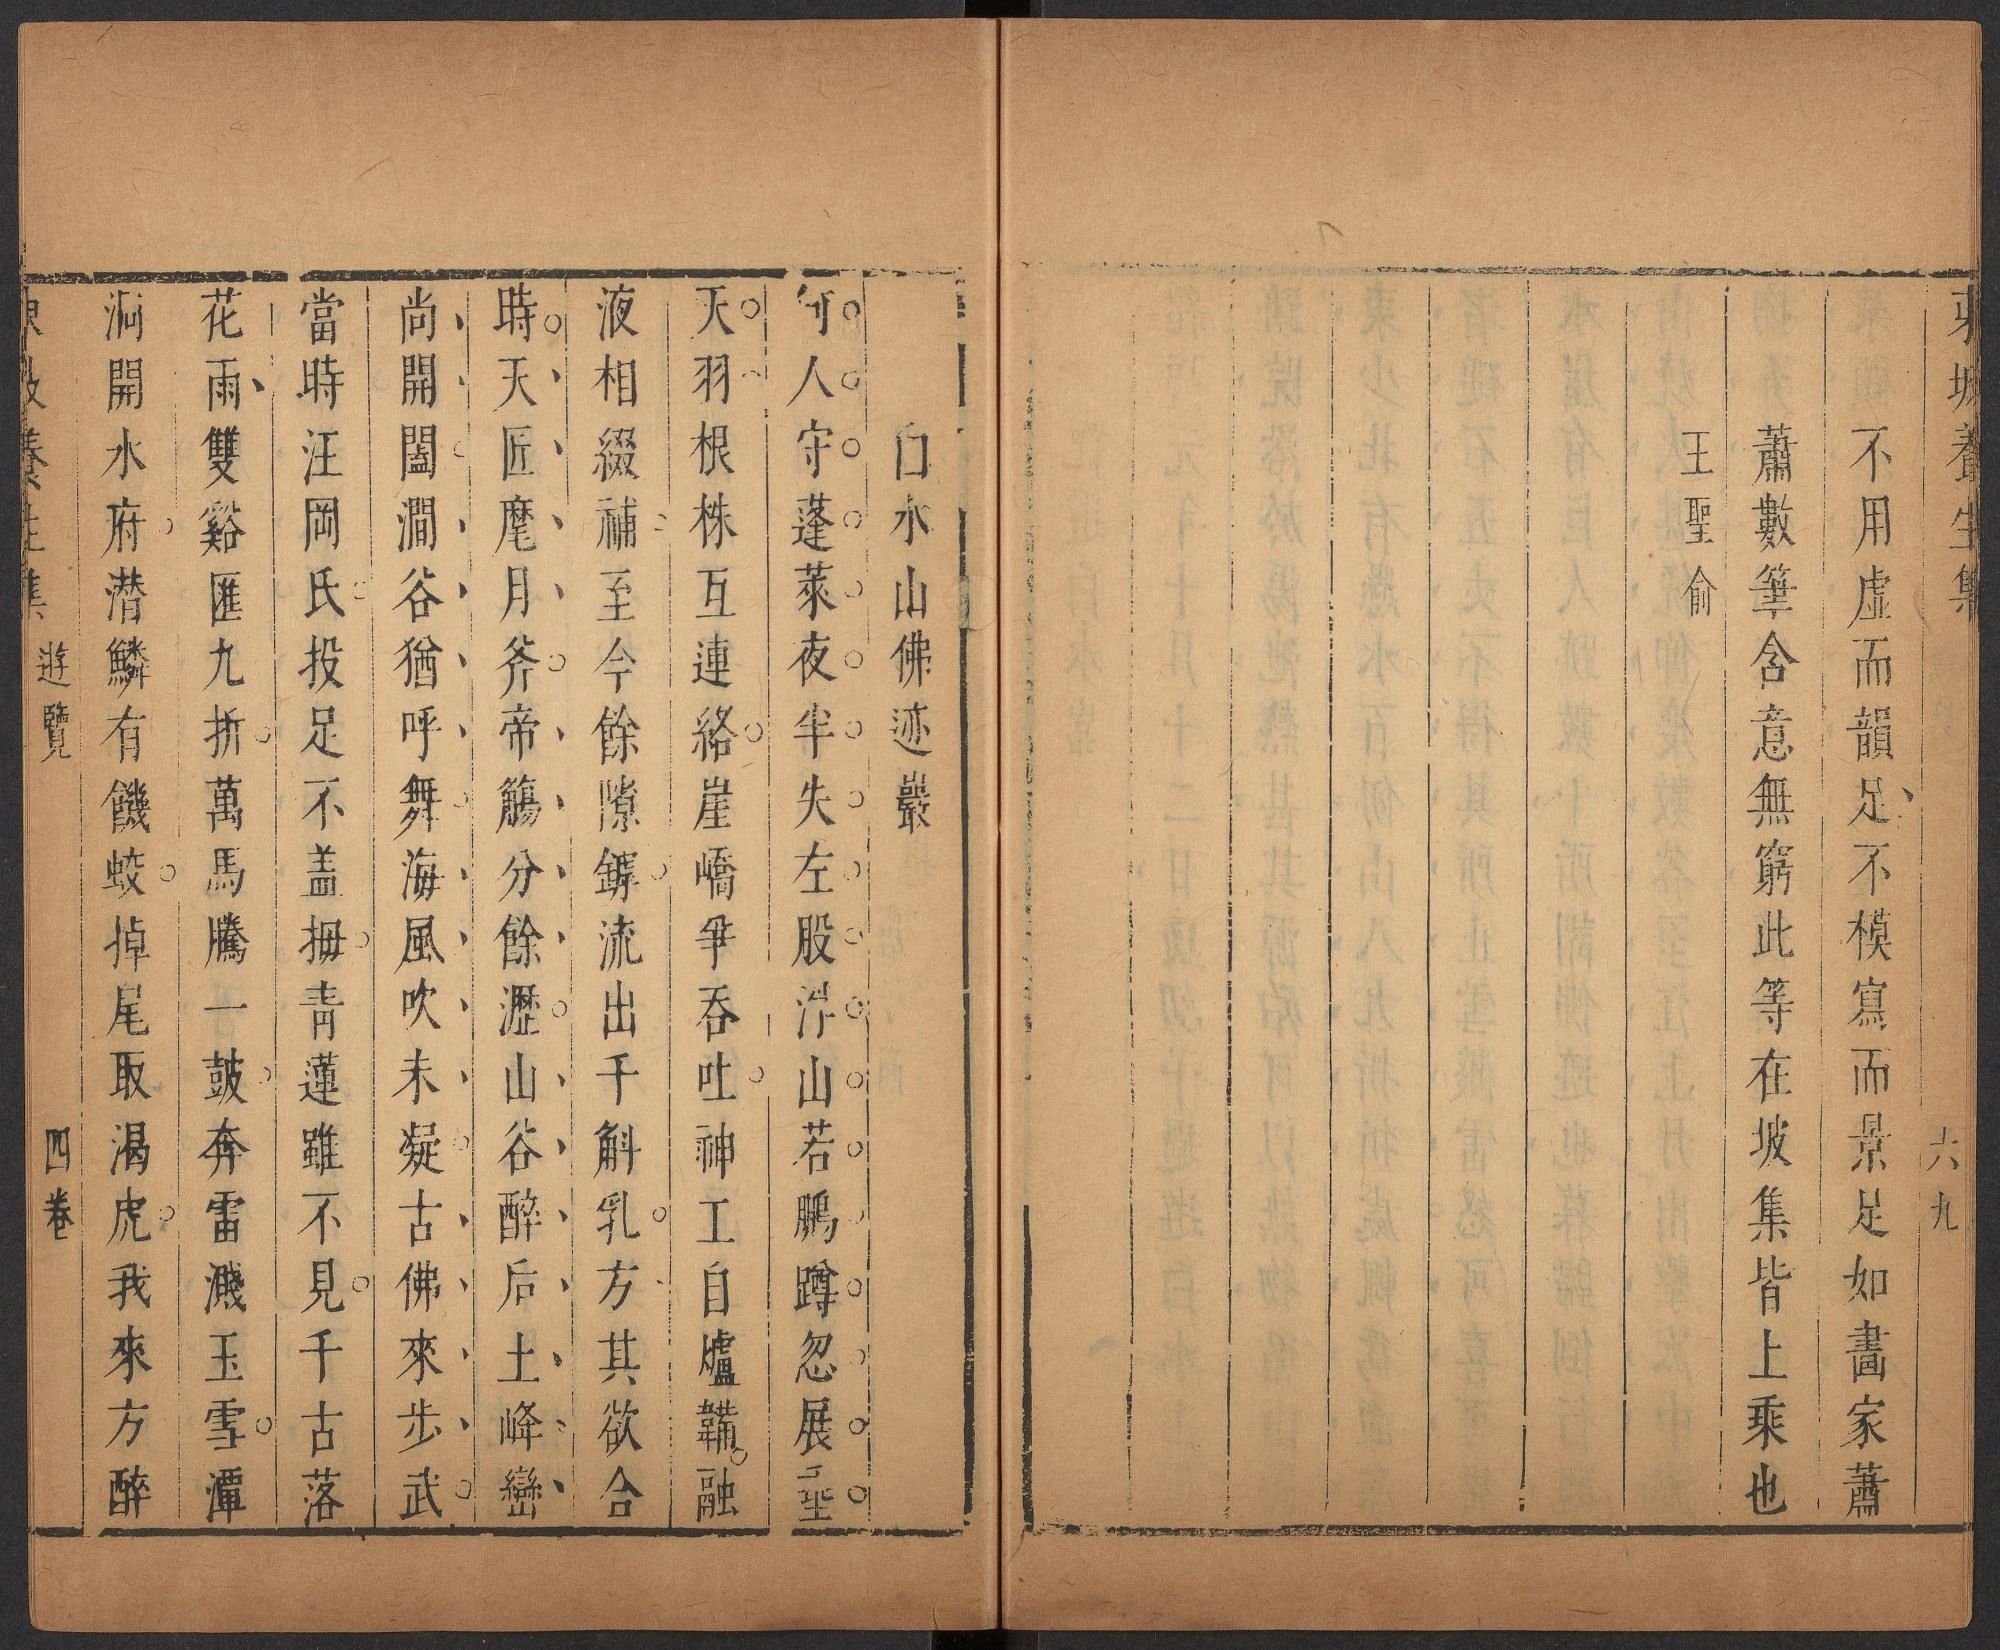 東坡養生集
六九
不用虛而韻足不模寫而景足如畫家蕭
蕭數筆含意無窮此等在坡集皆上乘也
王聖俞
白水山佛迹巖
何人守蓬萊夜半失左股浮山若鵬蹲忽展垂
天羽根株互連絡崖嶠爭吞吐神工自爐鞴融
液相綴補至今餘隙罅流出千斛乳方其欲合
時天匠麾月斧帝觴分餘瀝山谷醉后土峰巒
尚開闔澗谷猶呼舞海風吹未凝古佛來步武
當時汪罔氏投足不盖拇青蓮雖不見千古落
花雨雙谿匯九折萬馬騰一鼓奔雷濺玉雪潭
洞開水府潜鱗有饑蛟掉尾取渴虎我來方醉
東坡養生集
遊覽
四卷